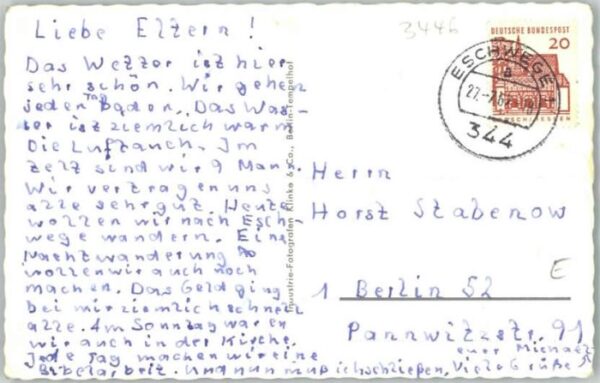 Liebe Eltern!
Das Wetter ist hier
sehr schön. Wir gehen
jeden Tag baden. Das Was-
ser ist ziemlich warm
Die Luft auch. Im
Zelt sind wir 9 Mann.
Wir vertragen uns
alle sehr gut. Heute
wollen wir nach Esch-
wege wandern. Eine
Nachtwanderung
wollen wir auch noch
machen. Das Geld ging
bei mir ziemlich schnell
alle. Am Sonntag waren
wir auch in der Kirche.
Jede Tag machen wir eine
Bibelarbeit. Und nun muß ich schließen. Viele Grüße
euer Michael
Industrie-Fotografen Klinke & Co., Berlin-Tempelhof
3446
DEUTSCHE BUNDESPOST
20
ESCHWEGE
a
344
Herrn
Horst Stabenow
1 Berlin 52
Pannwitzstr. 91
E